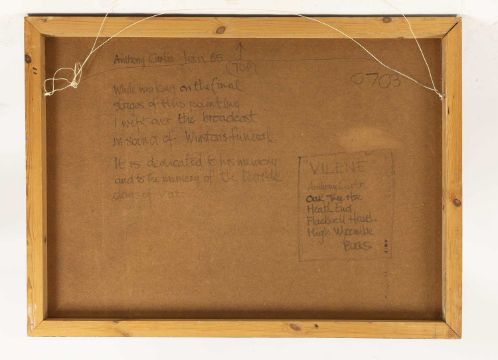 Anthony Carter Jan 65 (TOP)
0703
While working on the final
stages of this painting
I wept over the broadcast
in sound of Winston's funeral
It is dedicated to his memory
and to the memory of the terrible
days of war
VILENE
Anthony Carter
Oak Tree Hse
Heath End
Flackwell Heath
High Wycombe
Bucks